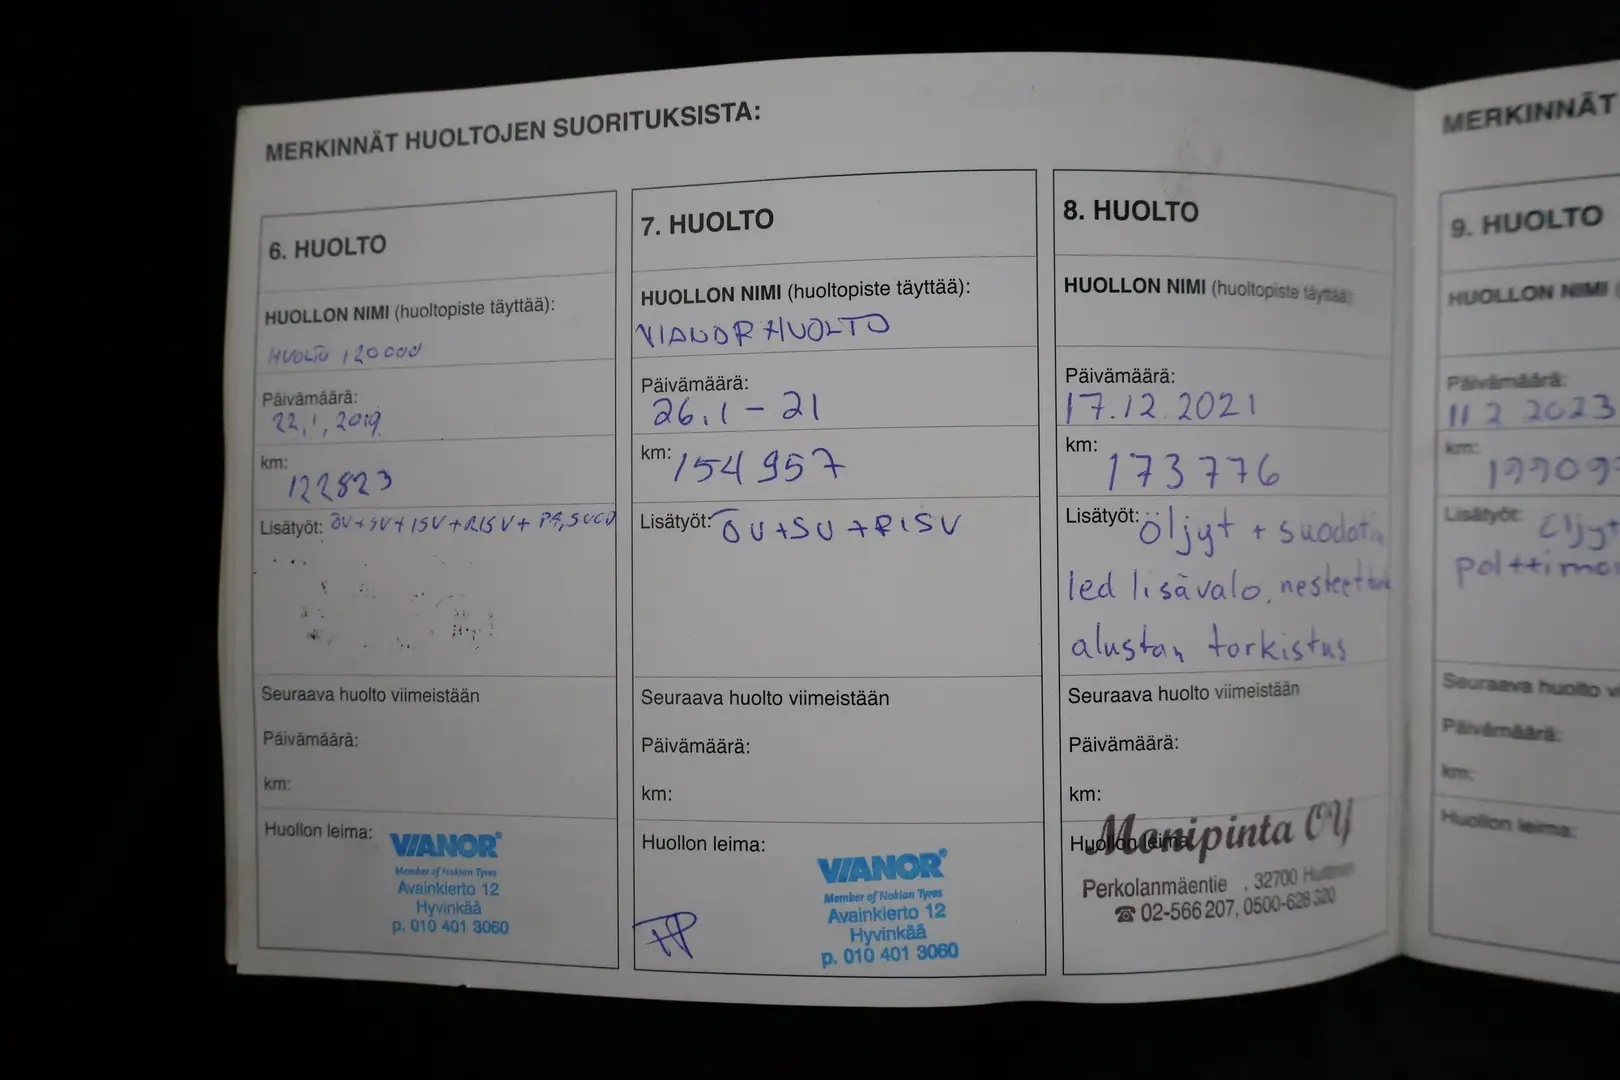 MERKINNÄT HUOLTOJEN SUORITUKSISTA:
6. HUOLTO
HUOLLON NIMI (huoltopiste täyttää):
HUOLTO 120000
Päivämäärä:
22.1.2019
km:
122823
Lisätyöt: ÖV+SV+ISV+RISV+
Seuraava huolto viimeistään
Päivämäärä:
km:
Huollon leima:
VIANOR
Member of Nokian Tyres
Avainkierto 12
Hyvinkää
p. 010 401 3060
7. HUOLTO
HUOLLON NIMI (huoltopiste täyttää):
VIANOR HUOLTO
Päivämäärä:
26.1-21
km: 154957
Lisätyöt: ÖV+SV+RISV
Seuraava huolto viimeistään
Päivämäärä:
km:
Huollon leima:
VIANOR
Member of Nokian Tyres
Avainkierto 12
Hyvinkää
p. 010 401 3060
8. HUOLTO
HUOLLON NIMI (huoltopiste täyttää):
Päivämäärä:
17.12.2021
km:
173776
Lisätyöt: öljyt +
led lisävalo,
alustan tarkistus
Seuraava huolto viimeistään
Päivämäärä:
km:
Huollon leima:
Monipinta OY
Perkolanmäentie , 32700
☎ 02-566 207, 0500-628 320
MERKINNÄT
9. HUOLTO
HUOLLON NIMI
Päivämäärä:
11 2 2023
km:
Lisätyöt:
Seuraava huolto
Päivämäärä:
km:
Huollon leima: